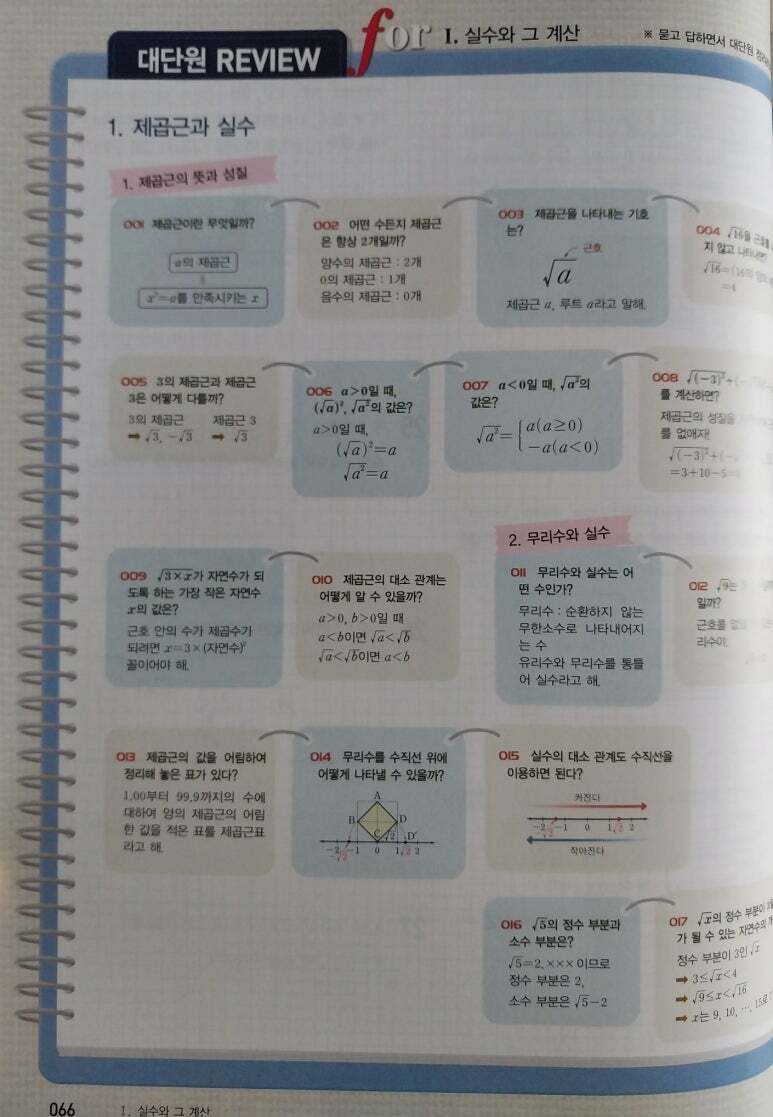 대단원 REVIEW for I. 실수와 그 계산
※ 묻고 답하면서 대단원
1. 제곱근과 실수
1. 제곱근의 뜻과 성질
001 제곱근이란 무엇일까?
a의 제곱근
x²=a를 만족시키는 x
002 어떤 수든지 제곱근
은 항상 2개일까?
양수의 제곱근 : 2개
0의 제곱근 : 1개
음수의 제곱근 : 0개
003 제곱근을 나타내는 기호
는?
근호
√a
제곱근 a, 루트 a라고 말해.
004 √16을 근호를
지 않고 나타내면?
√16=(16의
=4
005 3의 제곱근과 제곱근
3은 어떻게 다를까?
3의 제곱근 제곱근 3
➡ √3, -√3 ➡ √3
006 a>0일 때,
(√a)², √a²의 값은?
a>0일 때,
(√a)²=a
√a²=a
007 a<0일 때, √a²의
값은?
√a²={ a(a≥0)
-a(a<0)
008 √(-3)²+(-
를 계산하면?
제곱근의 성질을
를 없애자!
√(-3)²+(-
=3+10-5=
009 √3×x가 자연수가 되
도록 하는 가장 작은 자연수
x의 값은?
근호 안의 수가 제곱수가
되려면 x=3×(자연수)²
꼴이어야 해.
010 제곱근의 대소 관계는
어떻게 알 수 있을까?
a>0, b>0일 때
a<b이면 √a<√b
√a<√b이면 a<b
2. 무리수와 실수
011 무리수와 실수는 어
떤 수인가?
무리수 : 순환하지 않는
무한소수로 나타내어지
는 수
유리수와 무리수를 통틀
어 실수라고 해.
012 √9는
일까?
근호를
리수야.
013 제곱근의 값을 어림하여
정리해 놓은 표가 있다?
1.00부터 99.9까지의 수에
대하여 양의 제곱근의 어림
한 값을 적은 표를 제곱근표
라고 해.
014 무리수를 수직선 위에
어떻게 나타낼 수 있을까?
A
B D
C √2 D′
-2 -1 0 1 √2 2
-√2
015 실수의 대소 관계도 수직선을
이용하면 된다?
커진다
-2 -1 0 1 √2 2
-√2
작아진다
016 √5의 정수 부분과
소수 부분은?
√5=2.×××이므로
정수 부분은 2,
소수 부분은 √5-2
017 √x의 정수 부분이
가 될 수 있는 자연수의
정수 부분이 3인 √x
➡ 3≤√x<4
➡ √9≤x<√16
➡ x는 9, 10, …, 15로
066 I. 실수와 그 계산